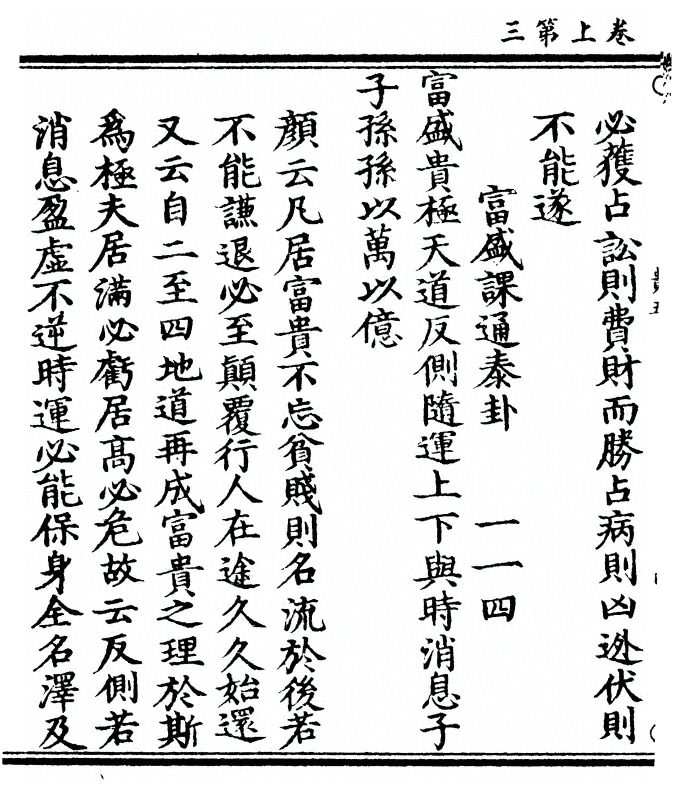 卷上第三
必獲占訟則費財而勝占病則凶逃伏則
不能遂
富盛課通泰卦 一一四
富盛貴極天道反側隨運上下與時消息子
子孫孫以萬以億
顏云凡居富貴不忘貧賤則名流於後若
不能謙退必至顛覆行人在途久久始還
又云自二至四地道再成富貴之理於斯
爲極夫居滿必虧居高必危故云反側若
消息盈虛不逆時運必能保身全名澤及